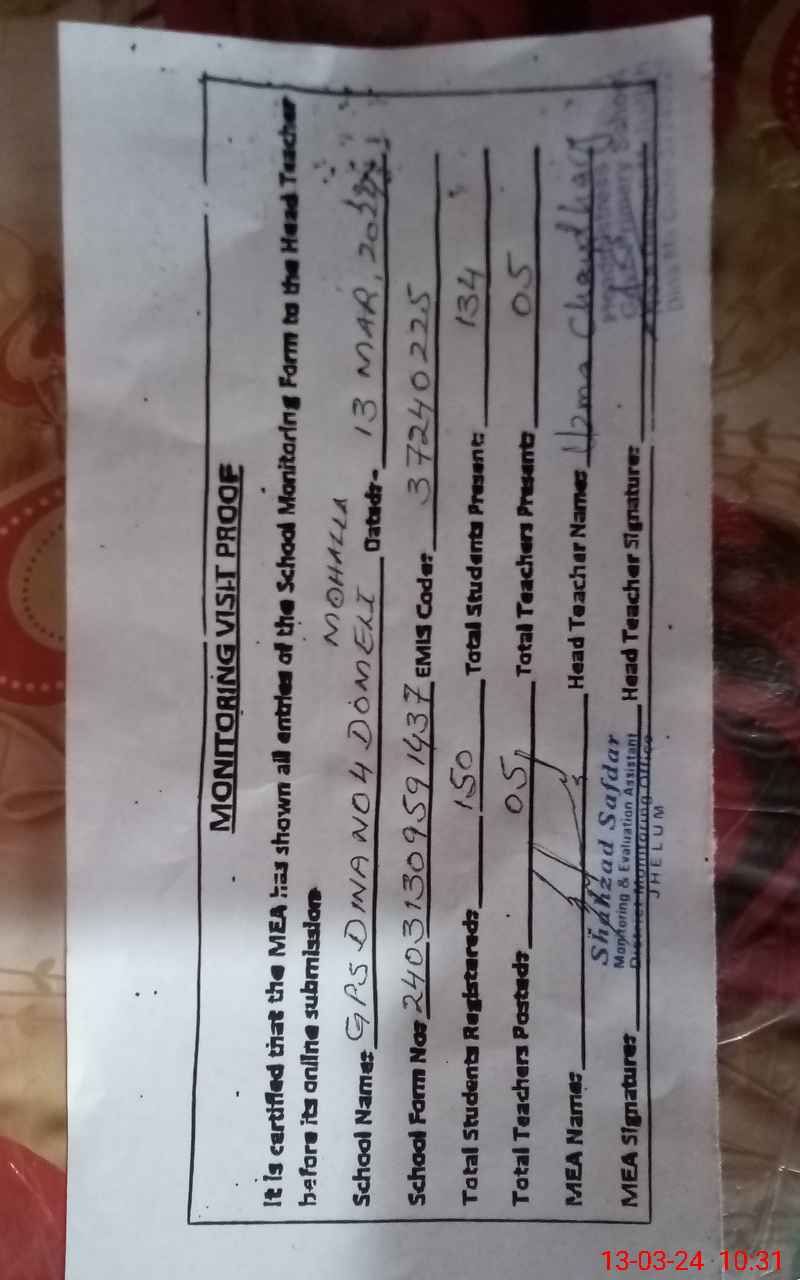 MONITORING VISIT PROOF
It is certified that the MEA has shown all entries of the School Monitoring Form to the Head Teacher
before its online submission.
School Name: GPS DINA NO 4 DOMELI MOHALLA Dated:- 13 MAR,
School Form No: 24031309591437 EMIS Code: 37240225
Total Students Registered: 150 Total Students Present: 134
Total Teachers Posted: 05 Total Teachers Present: 05
MEA Name: Head Teacher Name: Uzma Chaudhary
Shahzad Safdar
Monitoring & Evaluation Assistant
District Monitoring Office
JHELUM
MEA Signature: Head Teacher Signature:
13-03-24 10:31